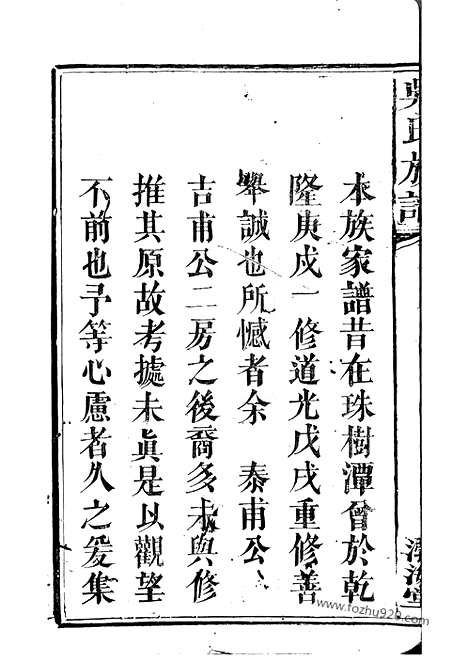 吳氏族譜
本族家譜昔在珠樹潭曾於乾
隆庚戍一修道光戊戌重修善
舉誠也所憾者余　泰甫公、
吉甫公二房之後裔多未與修
推其原故考據未眞是以觀望
不前也予等心慮者久之爰集
www.fozhu920.com